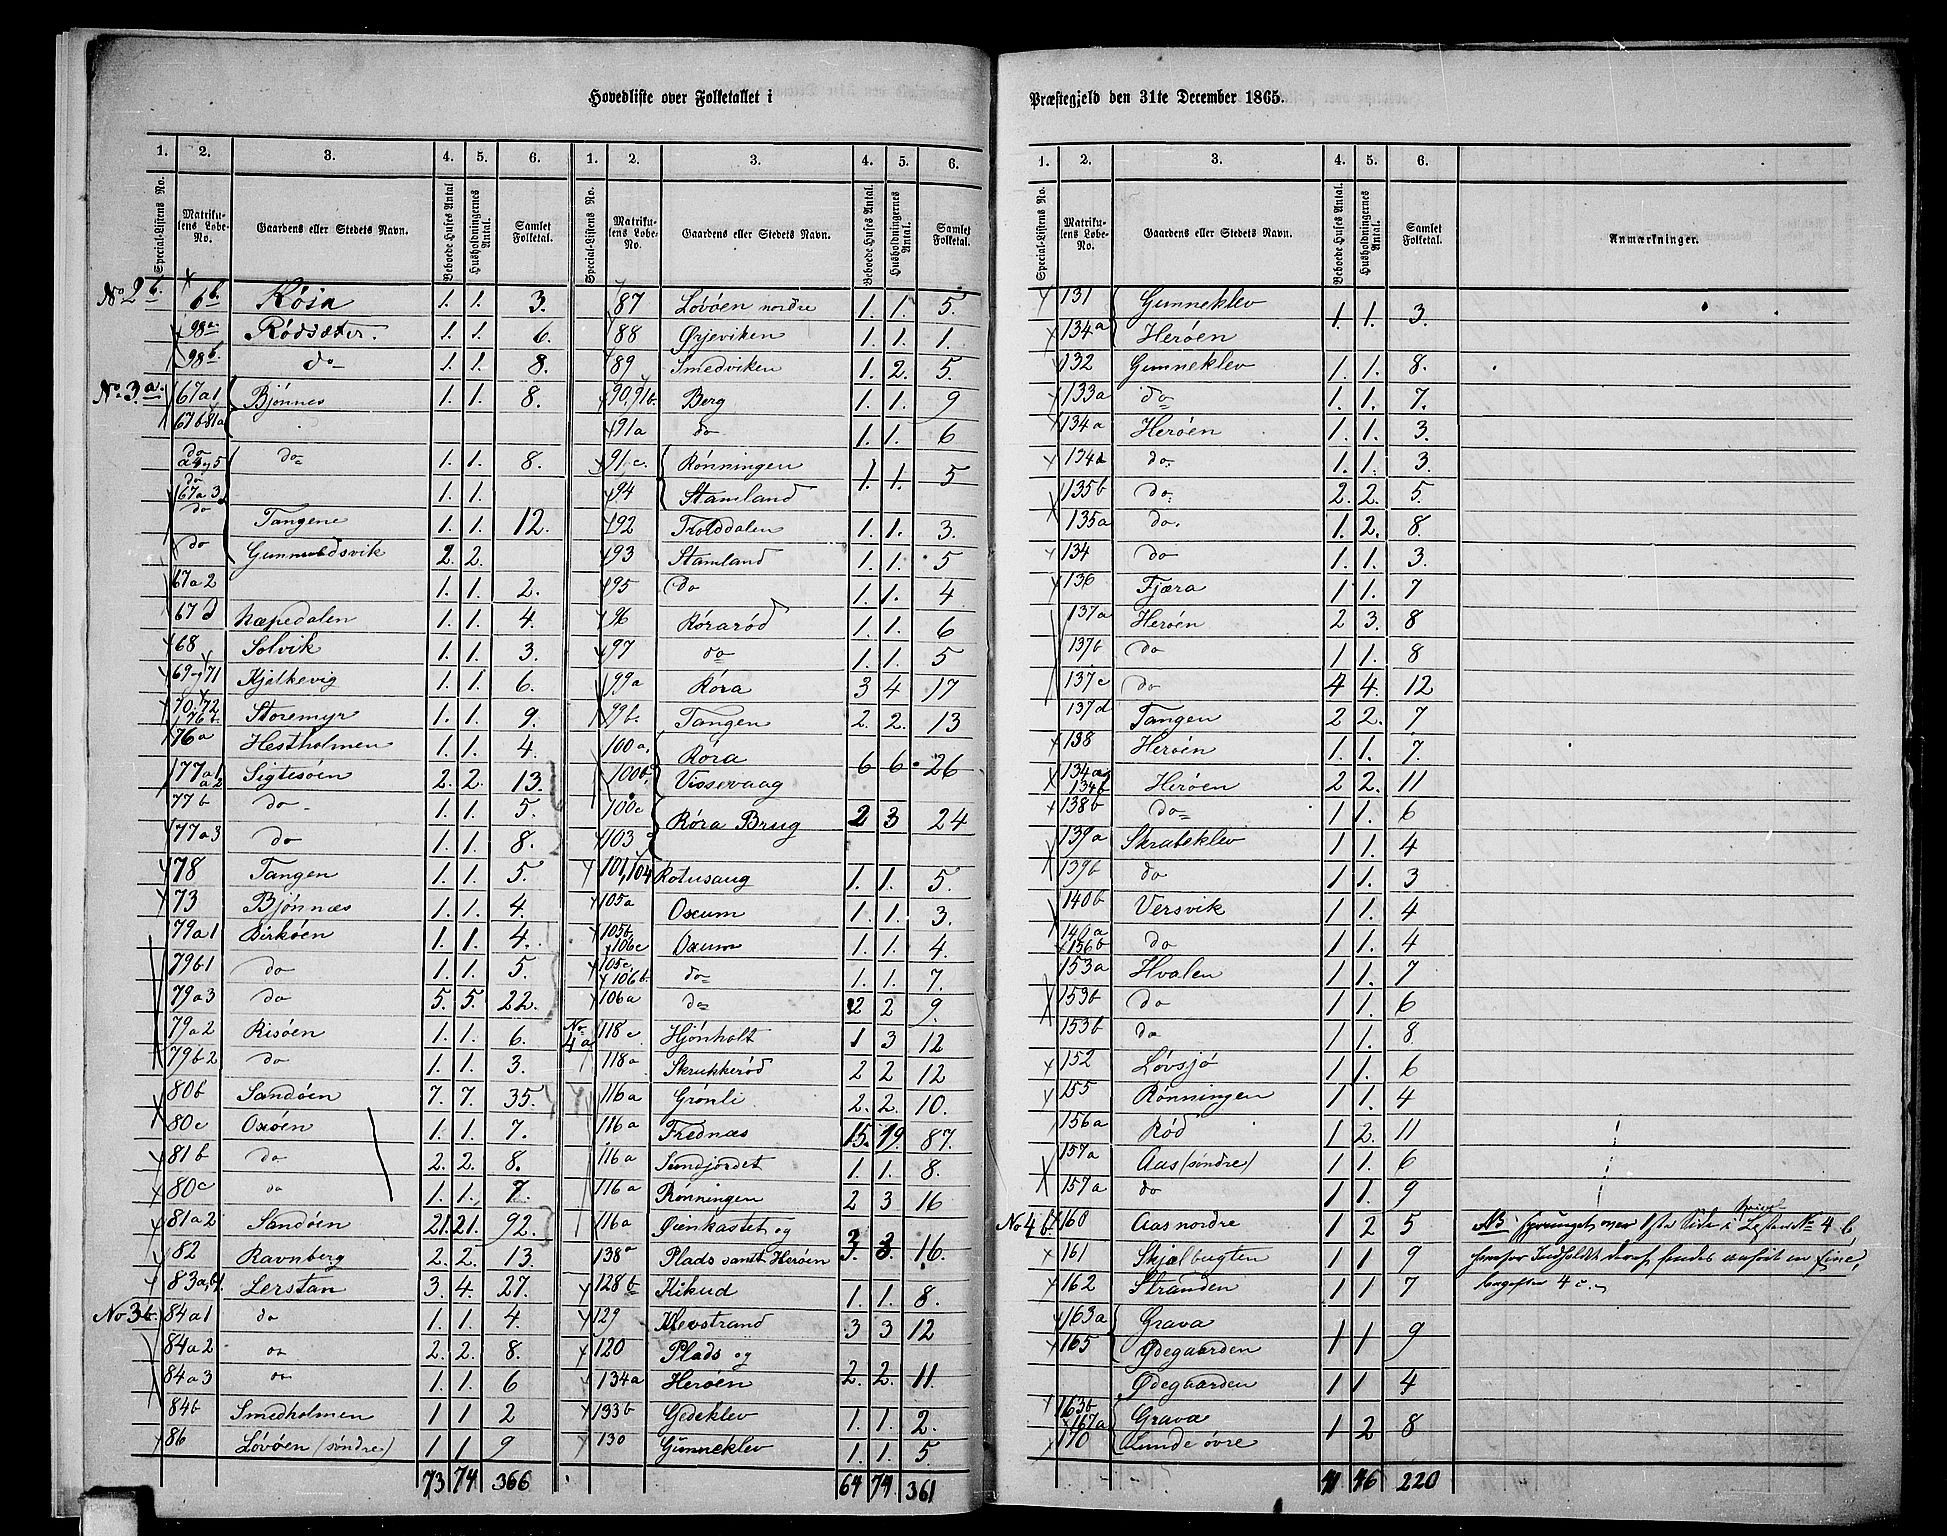 Hovedliste over Folketallet i
Præstegjeld den 31te December 1865.
1. 2. 3. 4. 5. 6. 1. 2. 3. 4. 5. 6.
Special-Listens No. Matrikulens Løbe-No. Gaardens eller Stedets Navn. Beboede Huses Antal Husholdningernes Antal. Samlet Folketal. Special-Listens No. Matrikulens Løbe-No. Gaardens eller Stedets Navn. Beboede Huses Antal. Husholdningernes Antal. Samlet Folketal.
No 2b. 6b Røsa 1. 1. 3.
98a Rødsæter. 1. 1. 6.
98b do 1. 1. 8.
No 3a. 67a1 Bjønnes 1. 1. 8.
67b 81a
do a4 5 do 1. 1. 8.
do 67a3 1. 1.
do Tangene 1. 1. 12.
do Gunnuldsvik 2. 2.
67a2 1. 1. 2.
67d Næpedalen 1. 1. 4.
68 Solvik 1. 1. 3.
69 71 Kjelkevig 1. 1. 6.
70. 72 76b Storemyr 1. 1. 9.
76a Hestholmen 1. 1. 4.
77a1 a2 Sigtesøen 2. 2. 13.
77b do 1. 1. 5.
77a3 do 1. 1. 8.
78 Tangen 1. 1. 5.
73 Bjønnæs 1. 1. 4.
79a1 Birkøen 1. 1. 4.
79b1 do 1. 1. 5.
79a3 do 5. 5. 22.
79a2 Risøen 1. 1. 6.
79b2 do 1. 1. 3.
80b Sandøen 7. 7. 35.
80c Oxøen 1. 1. 7.
81b do 2. 2. 8.
80c do 1. 1. 7.
81a2 Sandøen 21. 21. 92.
82 Ravnberg 2. 2. 13.
83a, b1. Lerstan 3. 4. 27.
No 3b. 84a1 do 1. 1. 4.
84a2 do 2. 2. 8.
84a3 do 1. 1. 6
84b Smedholmen 1 1 2
86 Løvøen (søndre) 1 1 9
73 74 366
87 Løvøen nordre 1. 1. 5.
88 Ørjeviken 1. 1. 1.
89 Smedviken 1. 2. 5.
90, 91b. Berg 1. 1. 9
91a do 1. 1. 6
91c. Rønningen 1. 1. 5
94 Stamland
92 Trolddalen 1. 1. 3.
93 Stamland 1. 1. 5
95 Do 1. 1. 4
96 Rørarød 1. 1. 6
97 do 1. 1. 5
99a Røra 3 4 17
99b. Tangen 2. 2. 13
100a, Røra 6 6 26
100b Vissevaag
100c Røra Brug 2 3 24
103
101, 104 Rotusaug 1. 1. 5.
105a Oxum 1. 1. 3.
105b 106c Oxum 1. 1. 4.
105c 106b. do 1. 1. 7.
106a do 2 2 9.
No 4a 118c Hjønholt 1 3 12
118a Skrukkerød 2 2 12
116a Grønli 2. 2. 10.
116a Frednæs 15. 19. 87.
116a Sundjordet 1. 1. 8.
116a Rønningen 2 3 16
116a Øienkastet og 3. 3. 16.
138a Plads samt Herøen
128b Kikud 1. 1. 8.
129 Klevstrand 3 3 12
120 Plads og
134a Herøen 2. 2. 11.
133b Gedeklev 1. 1. 2.
130 Gunneklev 1. 1. 5
64 74 361
1. 2. 3. 4. 5. 6.
Special-Listens No. Matrikulens Løbe-No. Gaardens eller Stedets Navn. Beboede Huses Antal. Husholdningernes Antal. Samlet Folketal. Anmærkninger.
131 Gunneklev 1. 1. 3.
134a Herøen
132 Gunneklev 1. 1. 8.
133a do 1. 1. 7.
134a Herøen 1. 1. 3.
134d do. 1. 1. 3.
135b do. 2. 2. 5.
135a do. 1. 2. 8.
134 do 1. 1. 3.
136 Fjæra 1. 1. 7
137a Herøen 2 3. 8
137b do 1 1. 8
137c do 4 4. 12
137d Tangen 2 2. 7
138 Herøen 1. 1. 7.
134a 134b Herøen 2 2. 11
138b do 1 1. 6
139a Skrabeklev 1 1. 4
139b do 1 1. 3
140b Versvik 1 1. 4
140a 156b do 1 1. 4
153a Hvalen 1 1. 7
153b do 1 1. 6
153b do 1 1. 8
152 Løvsjø 1 1. 6
155 Rønningen 1 1. 4
156a Rød 1 2. 11
157a Aas (søndre) 1 1. 6
157a do 1 1. 9
No 4b. 160 Aas nordre 1 2 5 NB sprunget over 1ste Side i Special Listen No 4b,
161 Skjelbugten 1 1 9 hvorfor Indholdt deraf findes anført en Linie,
162 Stranden 1 1 7 bagefter 4c.
163a Grava 1 1 9
165 Ødegaarden
Ødegaarden 1 1 4
163b 167a Grava 1 2 8
170 Lunde øvre
41 46 220